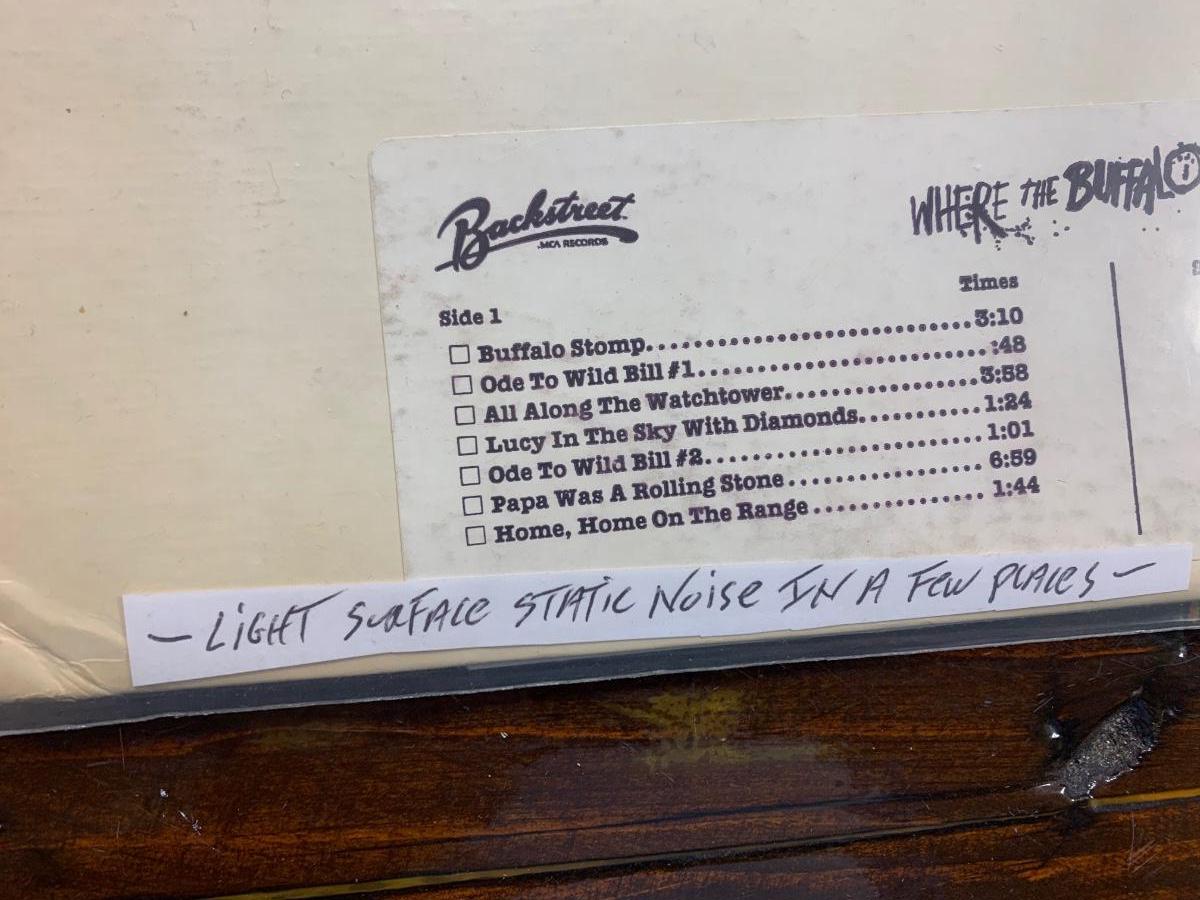 Backstreet
MCA RECORDS
WHERE THE BUFFALO
Times
Side 1
Buffalo Stomp........................3:10
Ode To Wild Bill #1........................:48
All Along The Watchtower................3:58
Lucy In The Sky With Diamonds...........1:24
Ode To Wild Bill #2........................1:01
Papa Was A Rolling Stone................. 6:59
Home, Home On The Range............... 1:44
— LIGHT SURFACE STATIC NOISE IN A FEW PLACES —